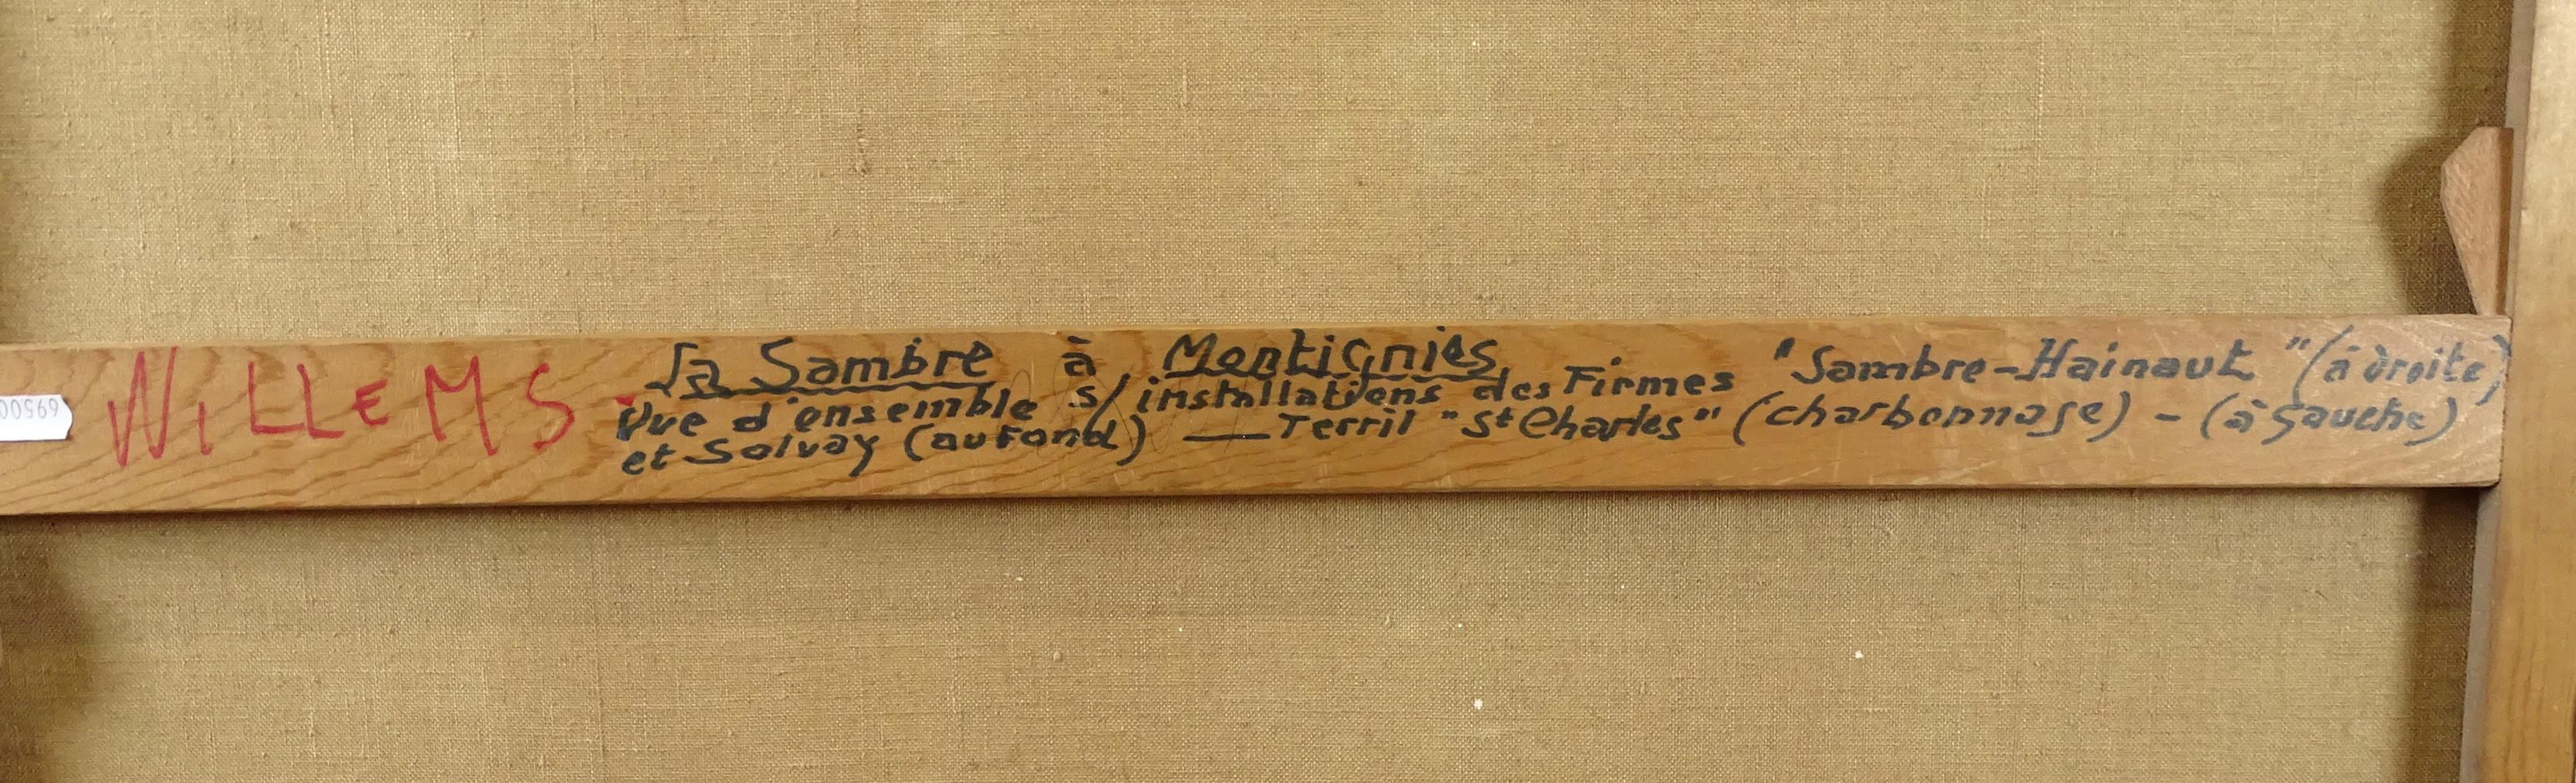 WiLLEMS.
La Sambre à Montignies
Vue d'ensemble s/installations des Firmes "Sambre-Hainaut" (à droite)
et Solvay (au Fond) — Terril "St Charles" (charbonnage) - (à gauche)